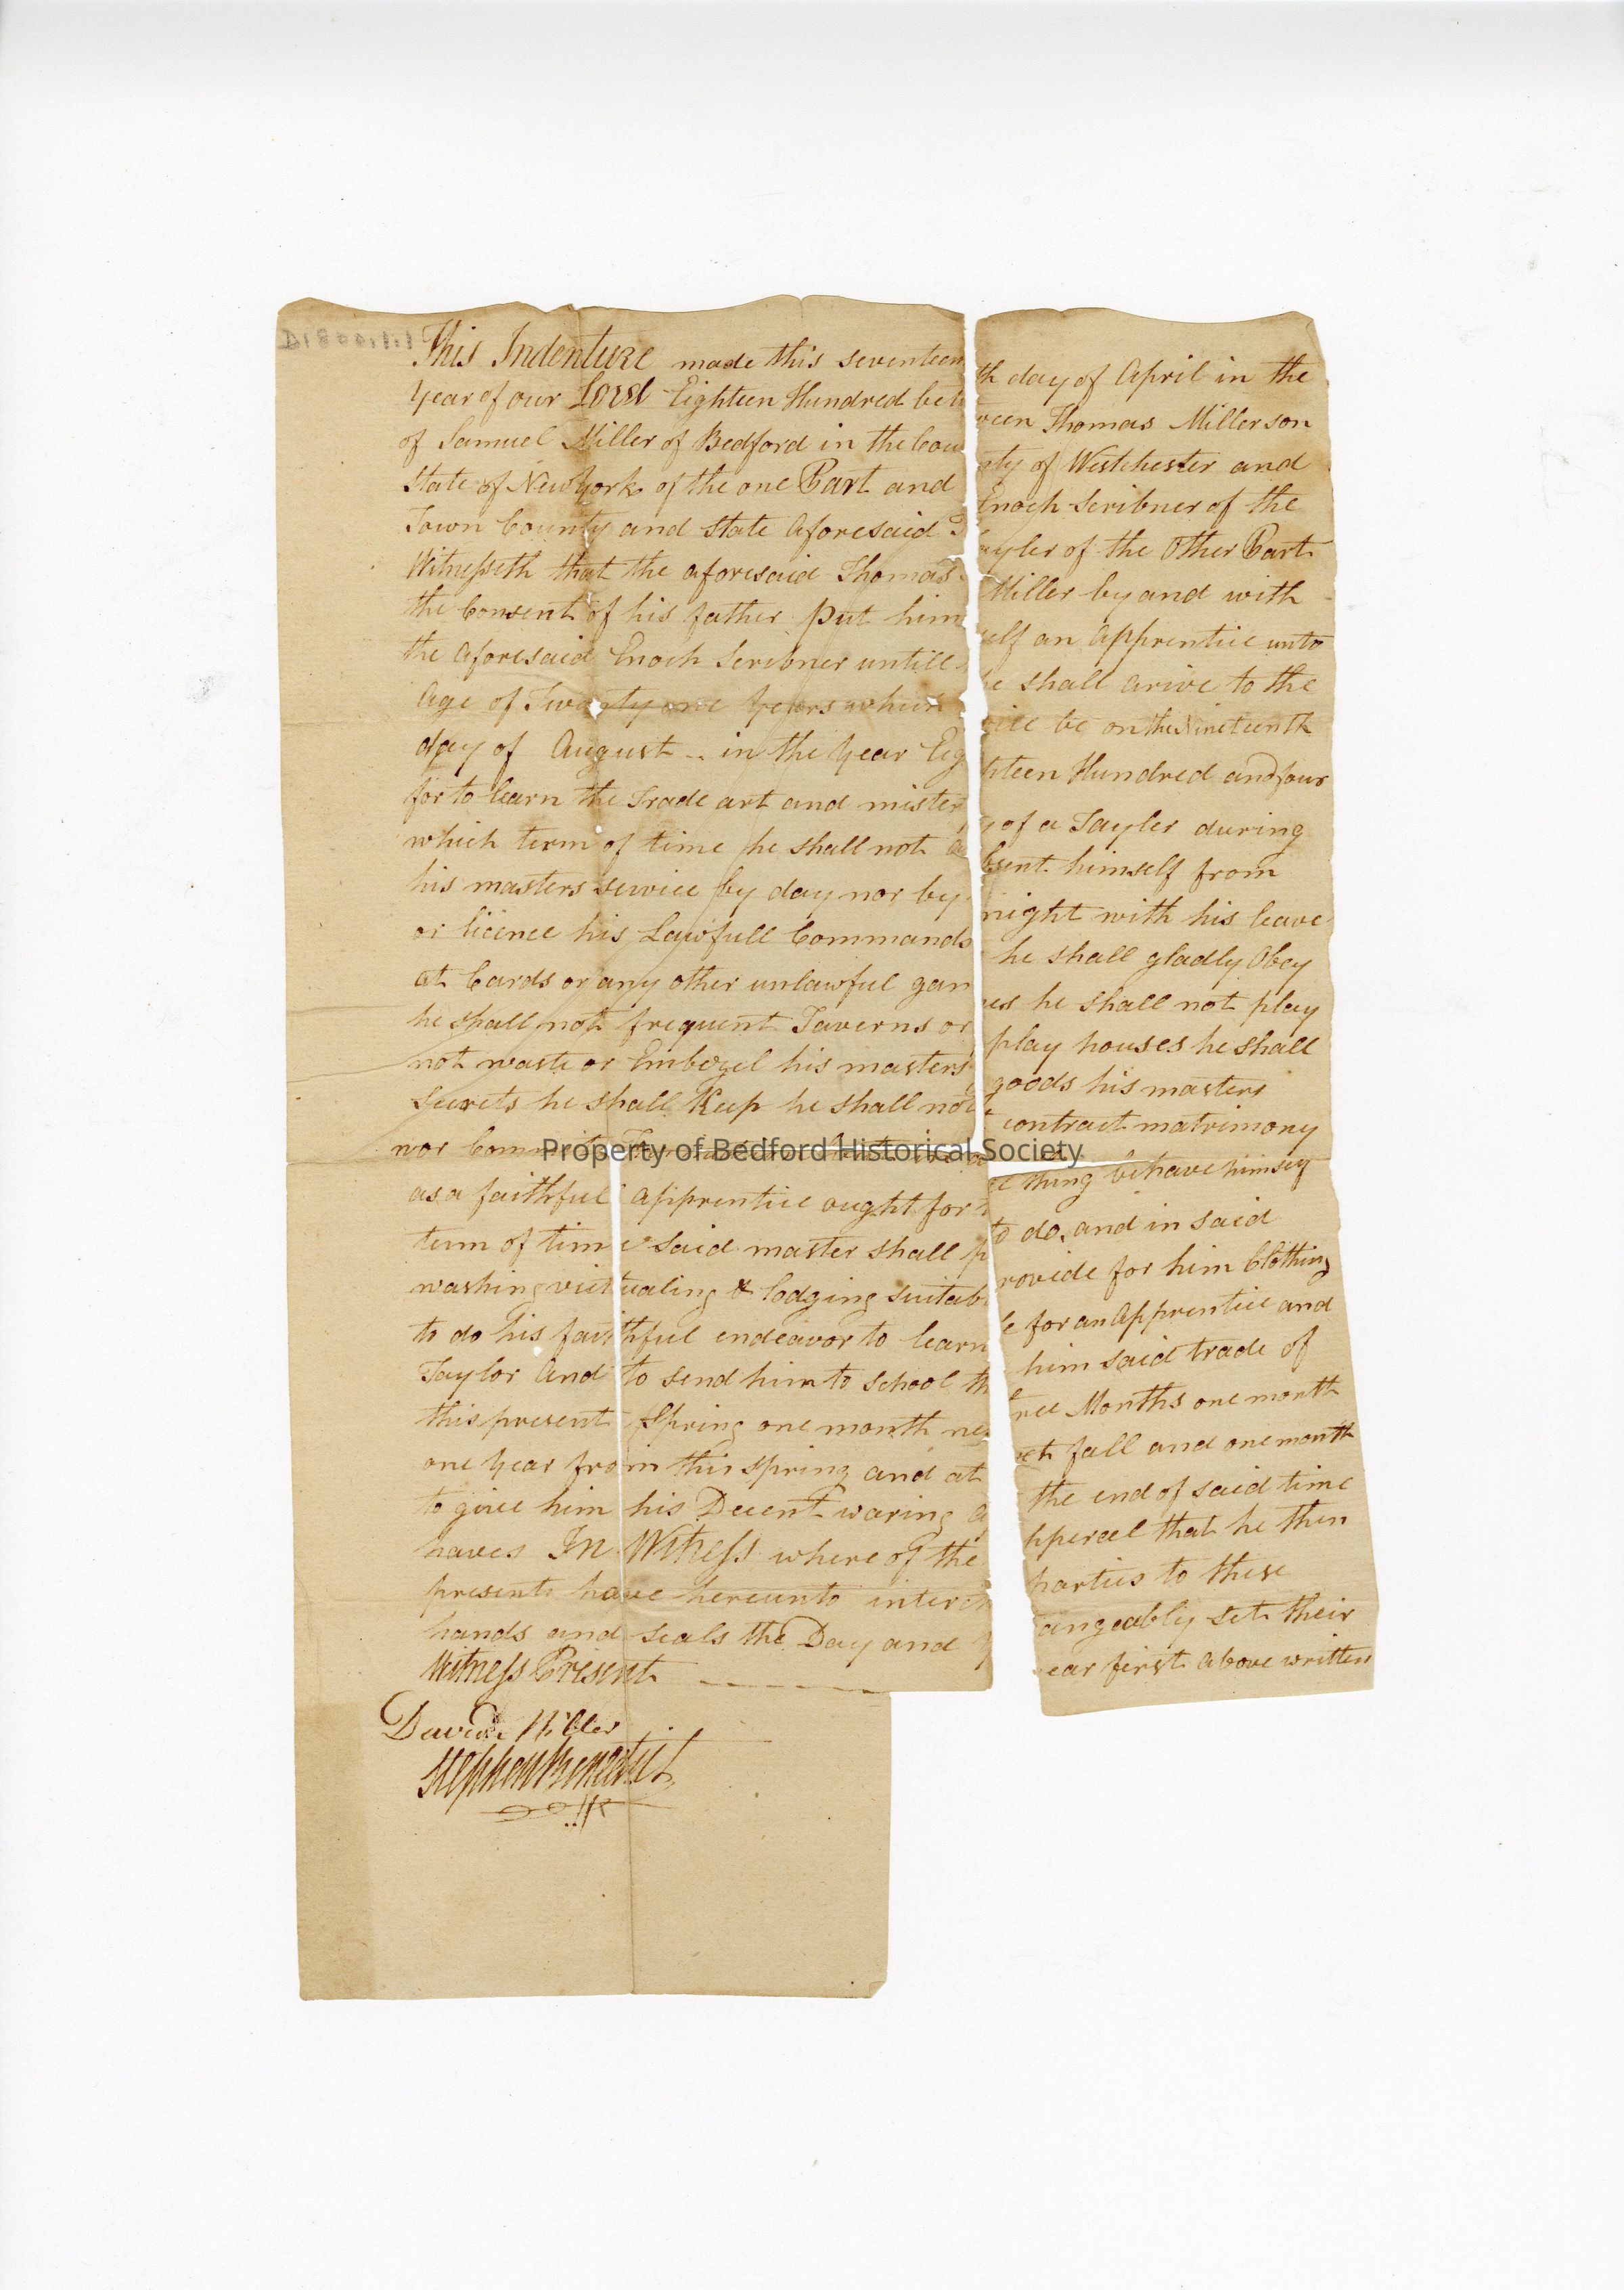 This Indenture made this seventeenth day of April in the
Year of our Lord Eighteen Hundred between Thomas Miller son
of Samuel Miller of Bedford in the County of Westchester and
State of New York of the one Part and Enoch Scribner of the
Town County and State Aforesaid Tayler of the Other Part
Witnesseth that the aforesaid Thomas Miller by and with
the Consent of his father put himself an Apprentice unto
the Aforesaid Enoch Scribner untill he shall arive to the
Age of Twenty one Years which will be on the Nineteenth
day of August -- in the Year Eighteen Hundred and four
for to learn the Trade art and mistery of a Tayler during
which term of time he shall not absent himself from
his masters service by day nor by night with his leave
or licence his Lawfull Commands he shall gladly Obey
at Cards or any other unlawful games he shall not play
he shall not frequent Taverns or play houses he shall
not waste or Embezel his masters goods his masters
Secrets he shall Keep he shall not contract matrimony
nor Commit thing behave himself
Property of Bedford Historical Society
as a faithful Apprentice ought for to do, and in said
term of time said master shall provide for him Clothing
washing victualing & lodging suitable for an Apprentice and
to do his faithful endeavor to learn him said trade of
Taylor And to send him to school three Months one month
this present Spring one month next fall and one month
one Year from this spring and at the end of said time
to give him his Decent waring apperel that he then
haves In Witness where of the parties to these
presents have hereunto interchangeably set their
hands and seals the Day and Year first above written
Witness Present
David Miller
Stephen Benedict